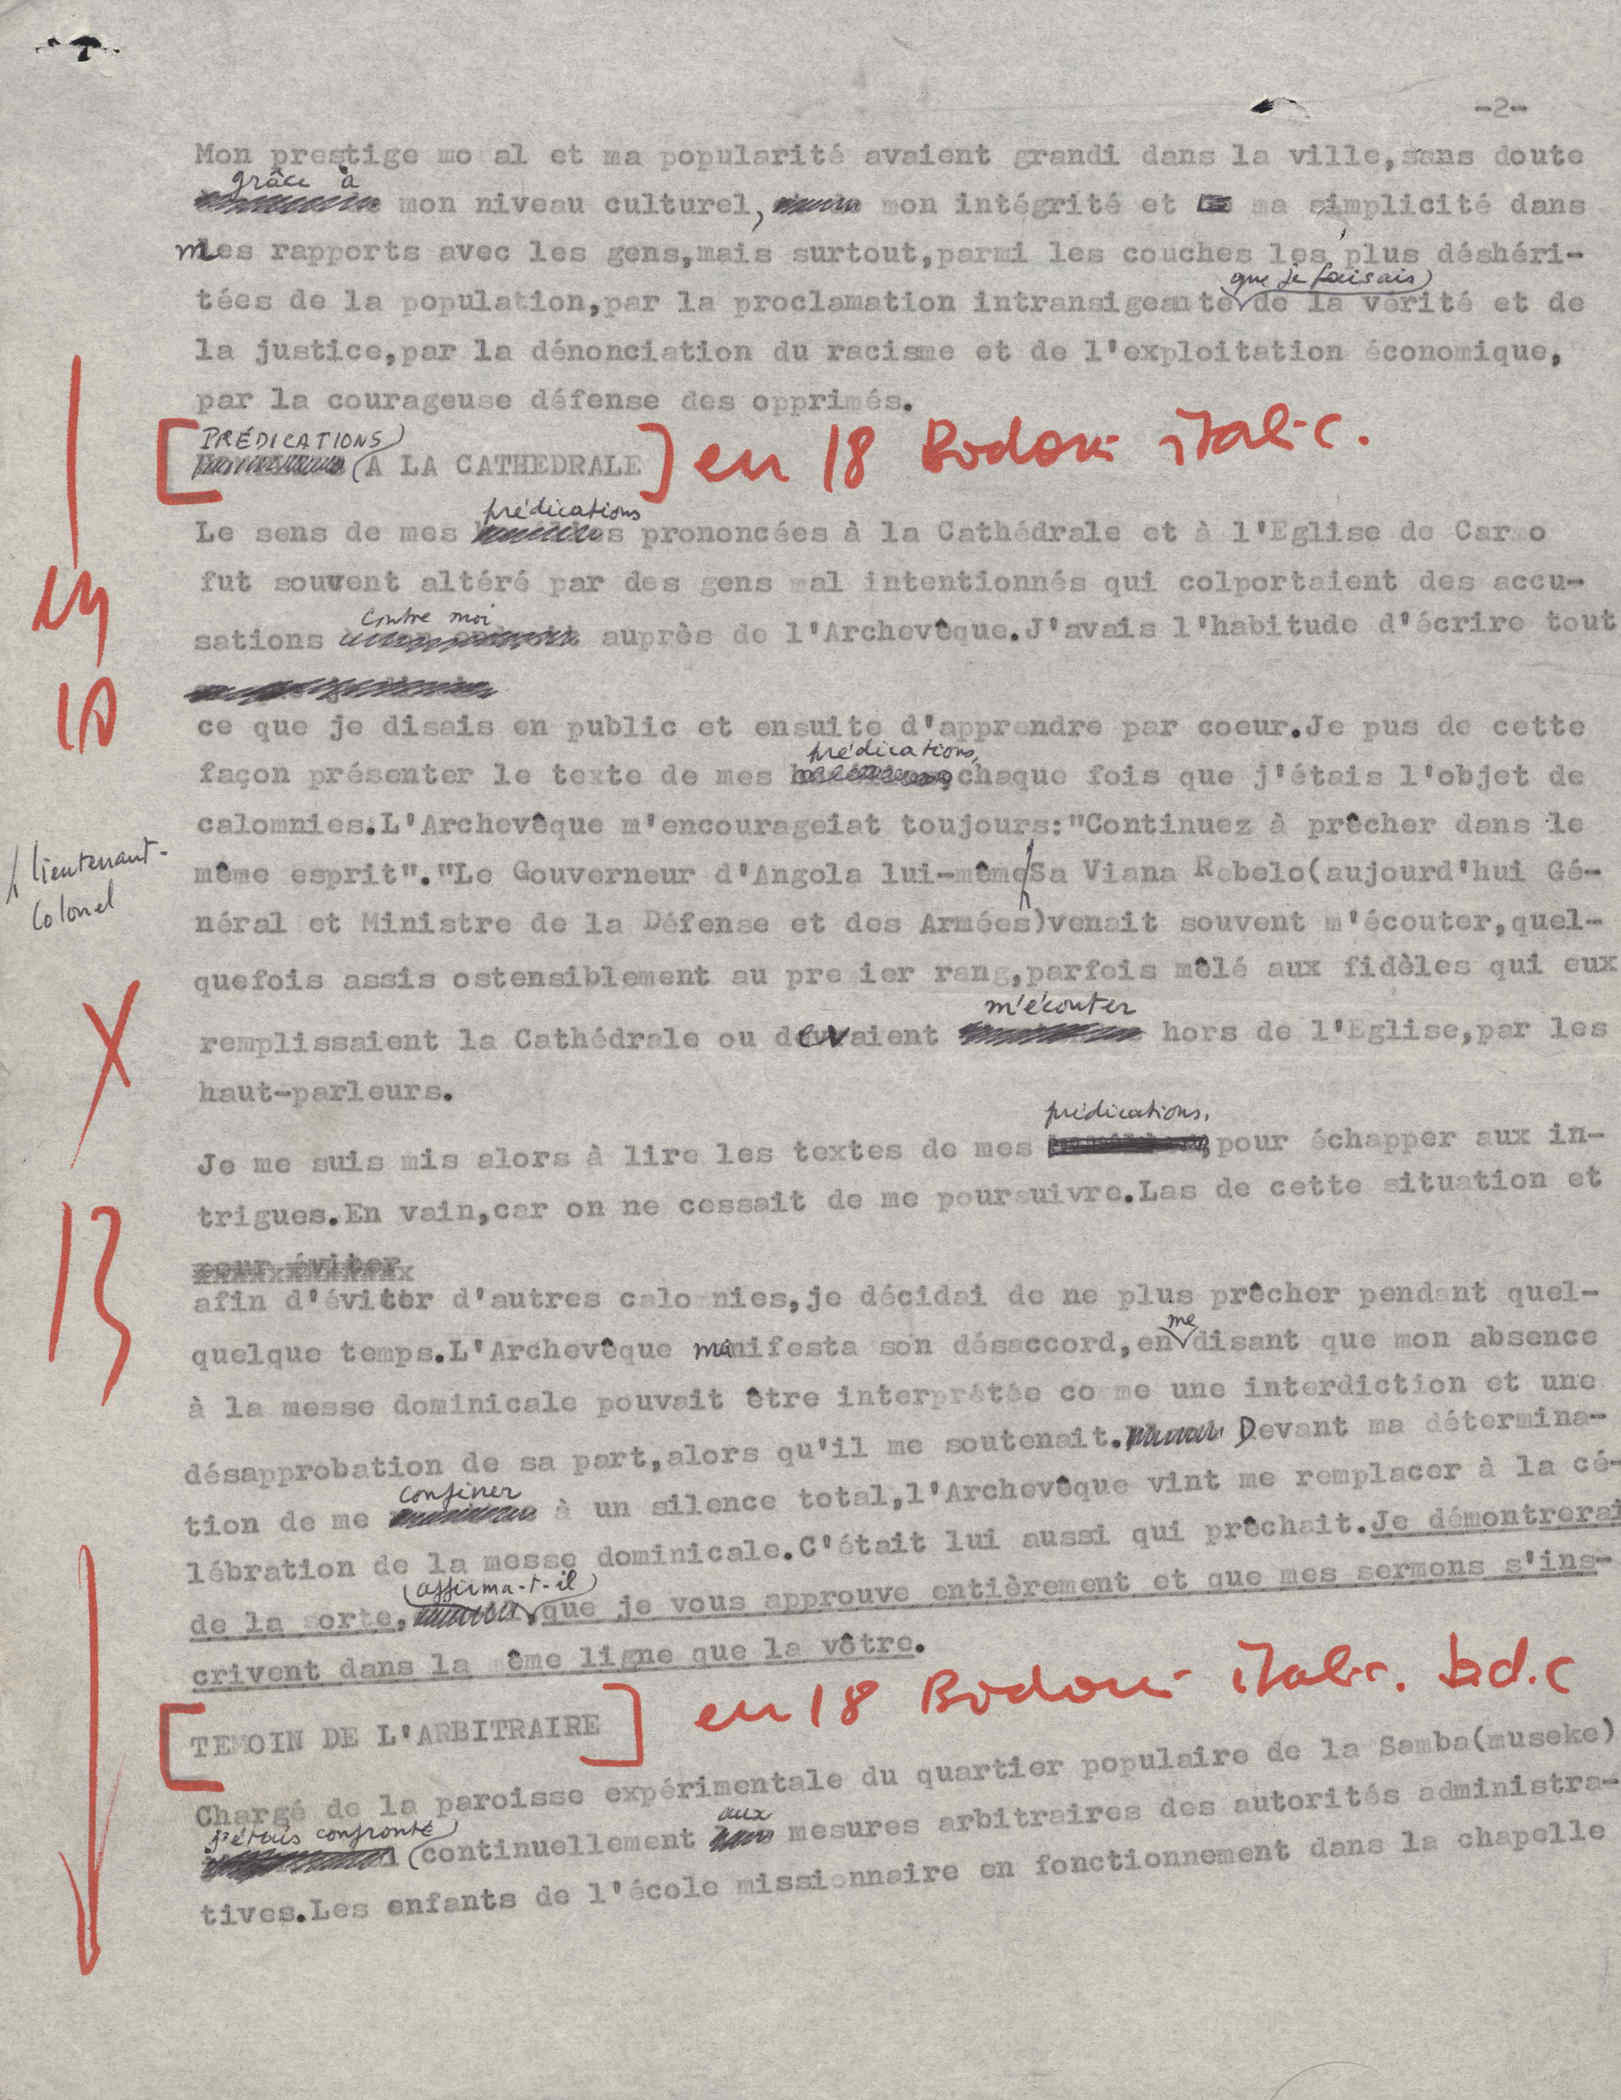 -2-
Mon prestige mo al et ma popularité avaient grandi dans la ville,sans doute
grâce à
mon niveau culturel, mon intégrité et ma simplicité dans
mes rapports avec les gens,mais surtout,parmi les couches les plus déshéri-
que je faisais
tées de la population,par la proclamation intransigeante de la vérité et de
la justice,par la dénonciation du racisme et de l'exploitation économique,
par la courageuse défense des opprimés.
PRÉDICATIONS
A LA CATHEDRALE en 18 Bodoni italic.
prédications
Le sens de mes prononcées à la Cathédrale et à l'Eglise de Carmo
fut souvent altéré par des gens mal intentionnés qui colportaient des accu-
contre moi
sations auprès de l'Archevêque.J'avais l'habitude d'écrire tout
ce que je disais en public et ensuite d'apprendre par coeur.Je pus de cette
prédications,
façon présenter le texte de mes chaque fois que j'étais l'objet de
calomnies.L'Archevêque m'encourageiat toujours:"Continuez à prêcher dans le
lieutenant-
colonel
même esprit"."Le Gouverneur d'Angola lui-même Sa Viana Rebelo(aujourd'hui Gé-
néral et Ministre de la Défense et des Armées)venait souvent m'écouter,quel-
quefois assis ostensiblement au pre ier rang,parfois mêlé aux fidèles qui eux
m'écouter
remplissaient la Cathédrale ou devaient hors de l'Eglise,par les
haut-parleurs.
prédications,
Je me suis mis alors à lire les textes de mes pour échapper aux in-
trigues.En vain,car on ne cessait de me poursuivre.Las de cette situation et
13
pour éviter
afin d'éviter d'autres calo nies,je décidai de ne plus prêcher pendant quel-
me
quelque temps.L'Archevêque manifesta son désaccord,en disant que mon absence
à la messe dominicale pouvait être interprétée co me une interdiction et une
désapprobation de sa part,alors qu'il me soutenait. Devant ma détermina-
confiner
tion de me à un silence total,l'Archevêque vint me remplacer à la cé-
lébration de la messe dominicale.C'était lui aussi qui prêchait.Je démontrerai
affirma-t-il
de la sorte, que je vous approuve entièrement et que mes sermons s'ins-
crivent dans la ême ligne que la vôtre.
TEMOIN DE L'ARBITRAIRE en 18 Bodoni italic. bd.c
Chargé de la paroisse expérimentale du quartier populaire de la Samba(museke)
j'étais confronté aux
continuellement mesures arbitraires des autorités administra-
tives.Les enfants de l'école missionnaire en fonctionnement dans la chapelle